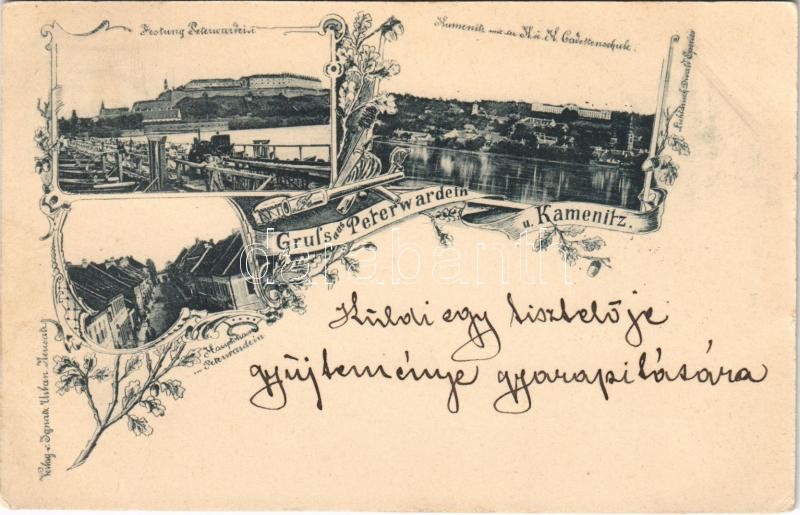 Festung Peterwardein
Kamenitz mit der K. u. K. Cadettenschule.
Gruss aus Peterwardein
u. Kamenitz.
Hauptstrasse
in Peterwardein
Verlag v. Ignatz Urban Neusatz
Lichtdruck Divald Eperies
darabanth
Küldi egy tisztelője
gyűjteménye gyarapitására